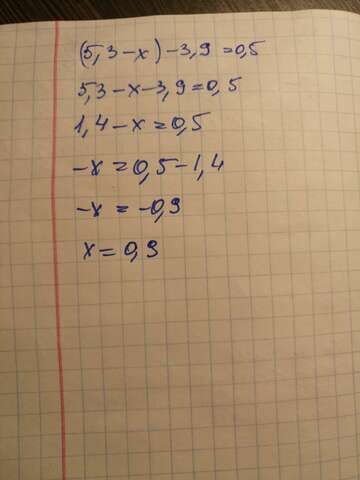 (5,3-x)-3,9=0,5
5,3-x-3,9=0,5
1,4-x=0,5
-x=0,5-1,4
-x=-0,9
x=0,9